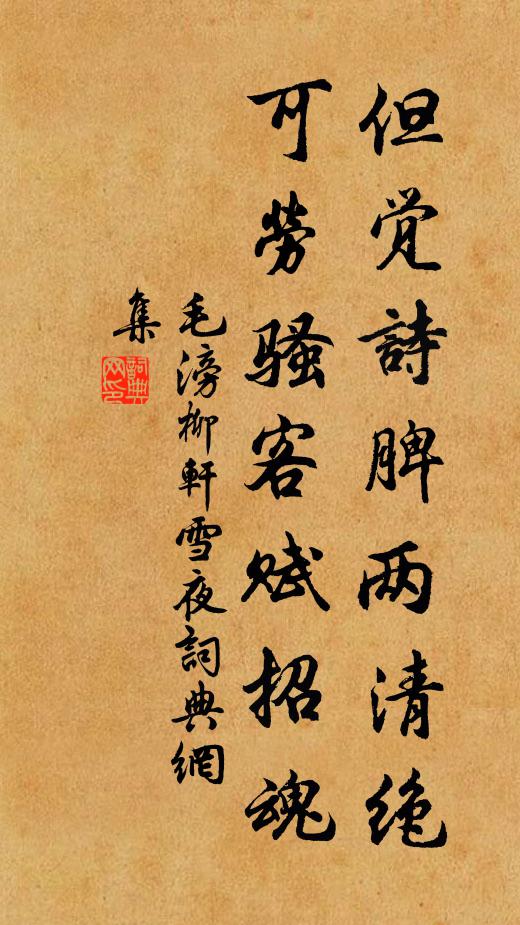 但觉詩脾两清绝
可勞骚客赋招魂
毛滂柳軒雪夜詞典網
集
詞典网印